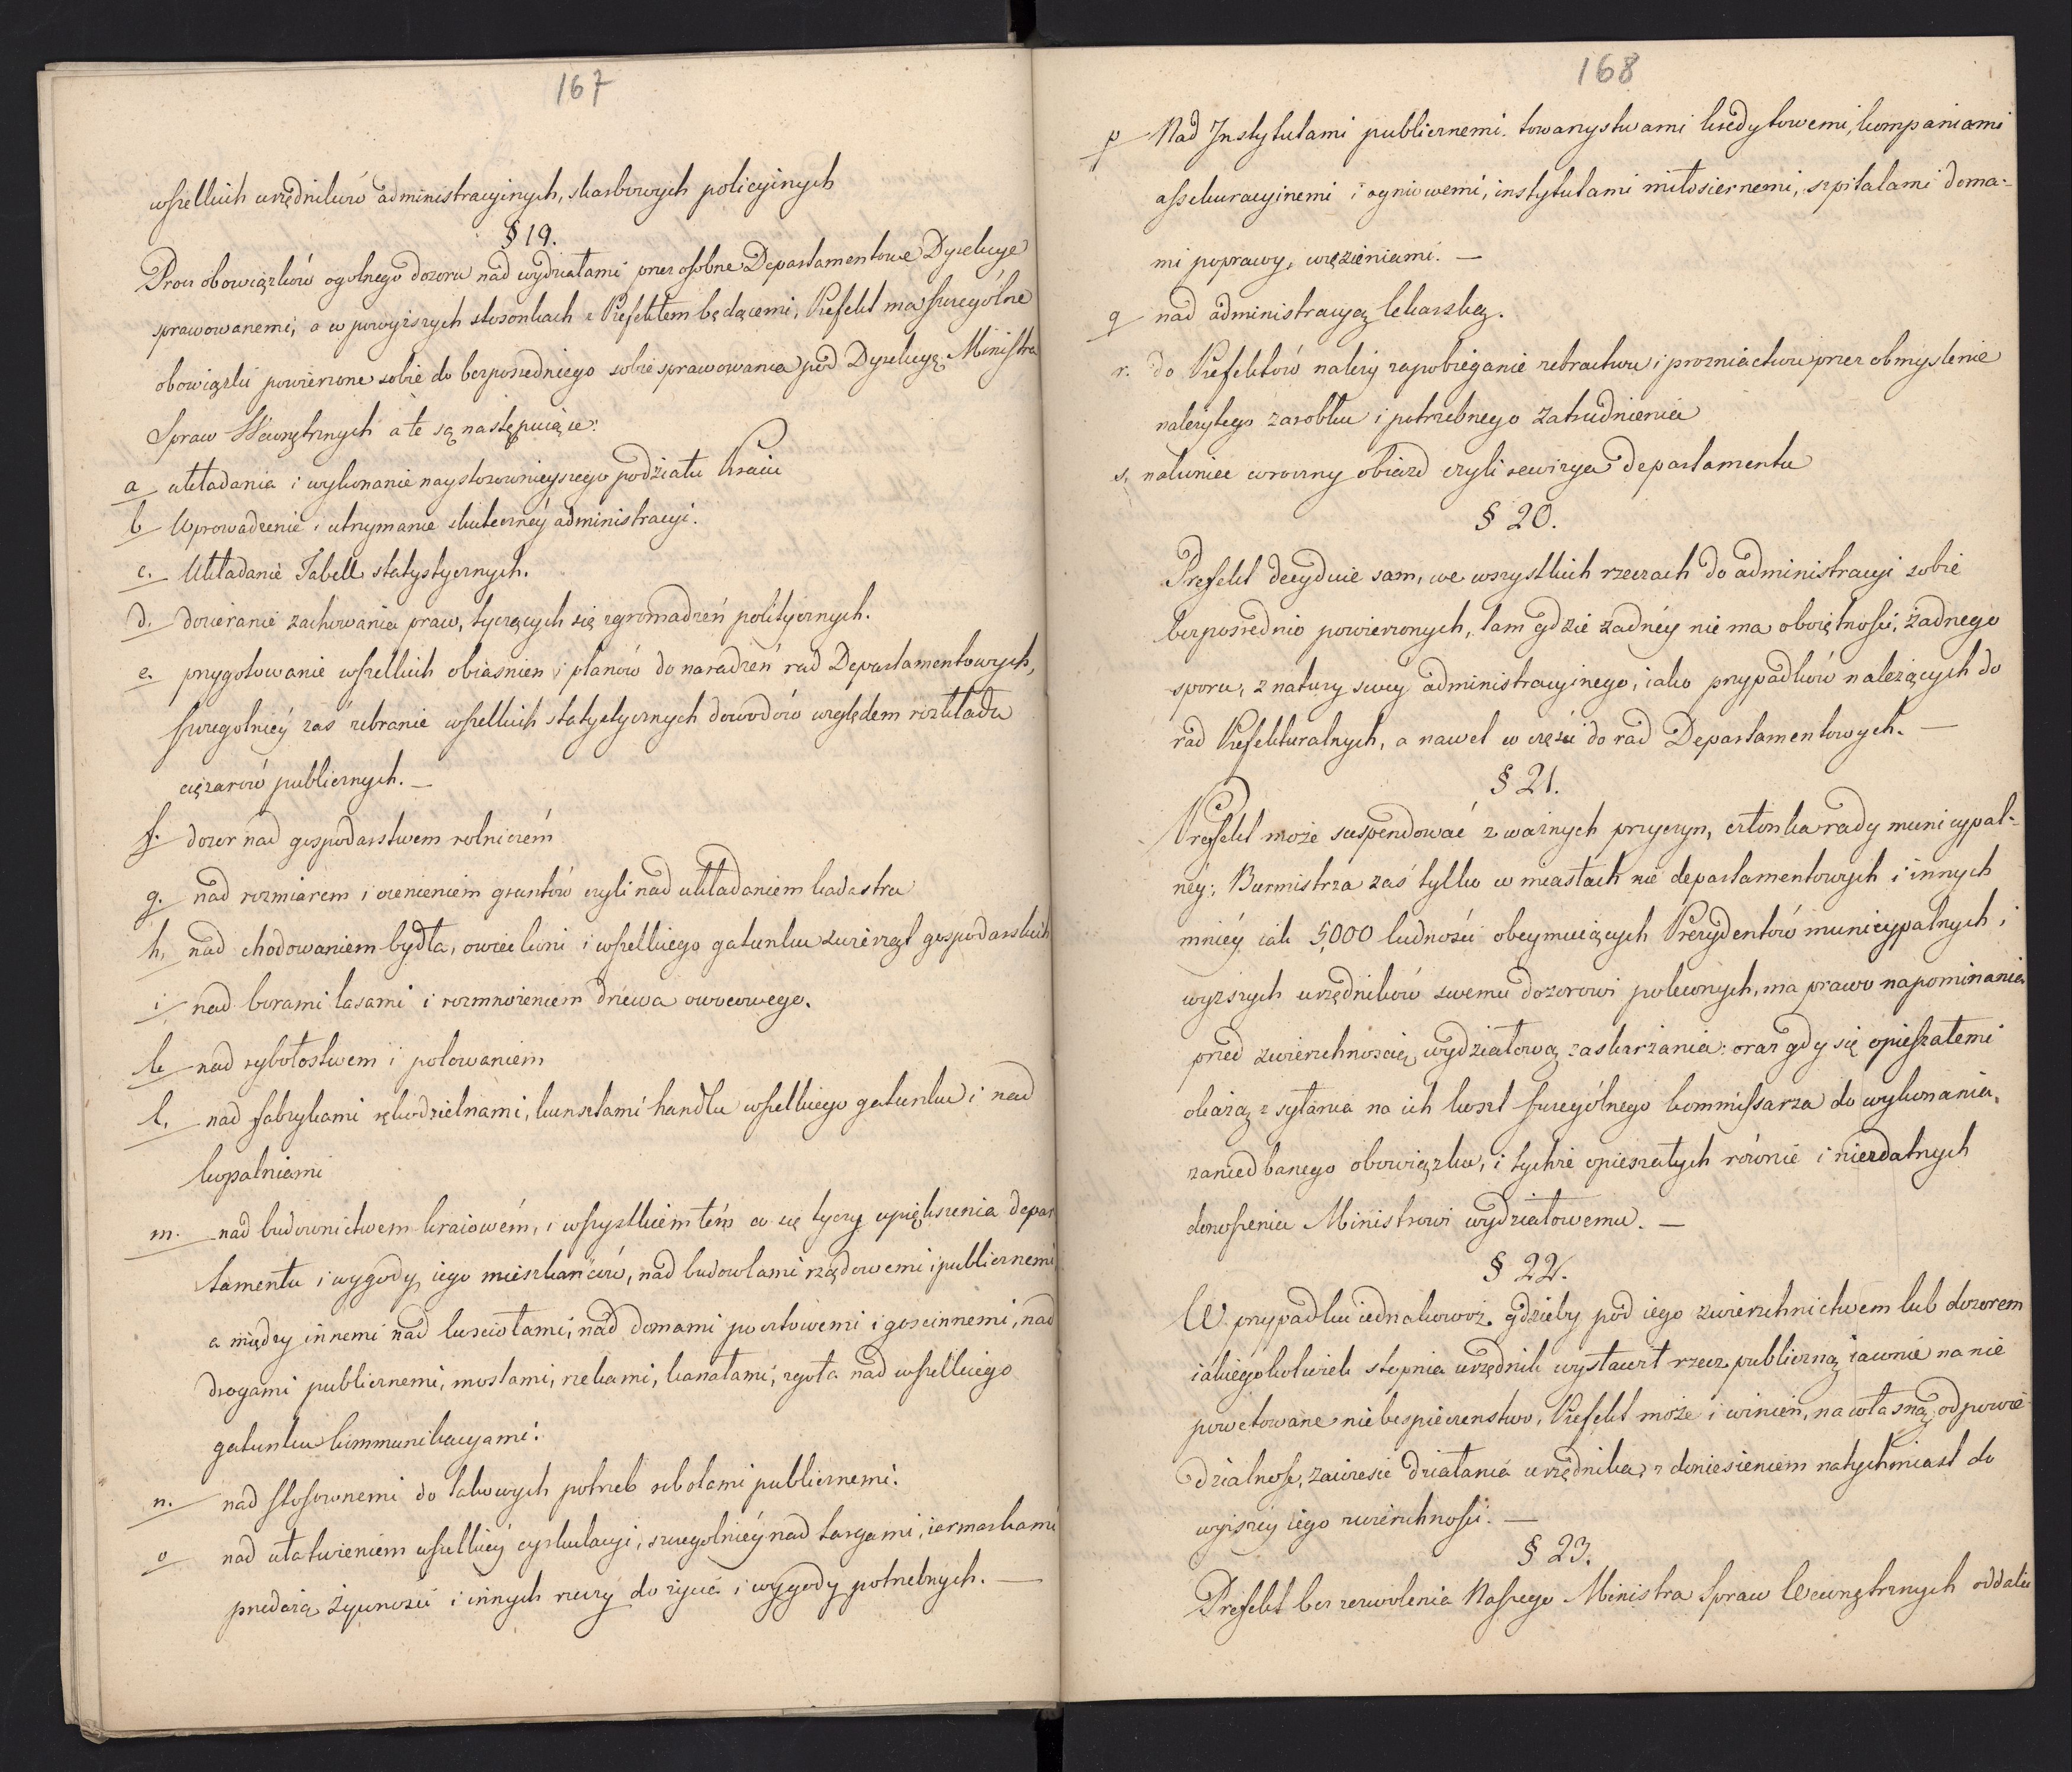 167
wszelkich urzędników administracyinych, skarbowych policyinych
§ 19.
Procz obowiązków ogolnego dozoru nad wydziałami przez osobne Departamentowe Dyrekcye
sprawowanemi, a w powyższych stosonkach z Prefektem będącemi, Prefekt ma szczególne
obowiązki powierzone sobie do bezposredniego sobie sprawowania pod Dyrekcyą Ministra
Spraw Wewnętrznych a te są następuiące:
a układania i wykonanie naystosownieyszego podziału Kraiu
b Wprowadzenie i utrzymanie skutecznéy administracyi.
c. Układanie Tabell statystycznych.
d. dozieranie zachowania praw, tyczących się zgromadzeń politycznych.
e. przygotowanie wszelkich obiasnien i planów do naradzeń rad Departamentowych,
szczegolniéy zaś zebranie wszelkich statystycznych dowodów względem rozkładu
ciężarów publicznych. —
f. dozor nad gospodarstwem rolniczém
g. nad rozmiarem i ocenieniem gruntów czyli nad układaniem kadastru
h. nad chodowaniem bydła, owiec koni i wszelkiego gatunku zwierząt gospodarskich
i nad borami lasami i rozmnożeniem drzewa owocowego.
k nad rybołostwem i polowaniem
l. nad fabrykami rękodzielnami, kunsztami handlu wszelkiego gatunku i nad
kopalniami
m. nad budownictwem kraiowém, i wszystkiem tém co się tyczy upiększenia depar
tamentu i wygody iego mieszkańców, nad budowlami rządowemi i publicznemi
a między innemi nad kosciołami, nad domami pocztowemi i goscinnemi, nad
drogami publicznemi, mostami, rzekami, kanałami, zgoła nad wszelkiego
gatunku kommunikacyami.
n. nad stosownemi do takowych potrzeb szkołami publicznemi.
o nad ułatwieniem wszelkiéy cyrkulacyi, szczegolniéy nad targami, iarmarkami
przedażą żywności i innych rzeczy do życia i wygody potrzebnych. —
168
p Nad Instytutami publicznemi. towarzystwami kredytowemi, kompaniami
assekuracyinemi i ogniowemi, instytutami miłosiernemi, szpitalami doma-
mi poprawy, więzieniami. —
q nad administracyą lekarską.
r. do Prefektów należy zapobieganie żebractwu i prozniactwu przez obmyslenie
należytego zarobku i potrzebnego zatrudnienia
s. nakoniec coroczny obiazd czyli rewizya departamentu
§ 20.
Prefekt decyduie sam, we wszystkich rzeczach do administracyi sobie
bezpośrednio powierzonych, tam gdzie żadnéy nie ma obiętnosci, żadnego
sporu, z natury swey administracyinego, iako przypadków należących do
rad Prefekturalnych, a nawet w części do rad Departamentowych. —
§ 21.
Prefekt może suspendować z ważnych przyczyn, członka rady municypal-
néy; Burmistrza zaś tylko w miastach nie departamentowych i innych
mniéy iak 5,000 ludności obeymuiących Prezydentów municypalnych i
wyższych urzędników swemu dozorowi poleconych, ma prawo napominania
przed zwierzchnoscią wydziałową zaskarżania: oraz gdy się opieszałemi
okażą zsyłania na ich koszt szczególnego kommissarza do wykonania,
zaniedbanego obowiązku, i tychże opieszałych równie i niezdatnych
donoszenia Ministrowi wydziałowemu. —
§ 22.
W. przypadku iednakowoż. gdzieby pod iego zwierzchnictwem lub dozorem
iakiegokolwiek stopnia urzędnik wystawił rzecz publiczną iawnie na nie
powetowane niebespieczenstwo, Prefekt może i winien, na własną odpowie
dzialnosc, zawiesić działania urzędnika, z doniesieniem natychmiast do
wyższey iego zwierzchnosci. —
§ 23.
Prefekt bez zezwolenia Naszego Ministra Spraw Wewnętrznych oddalić